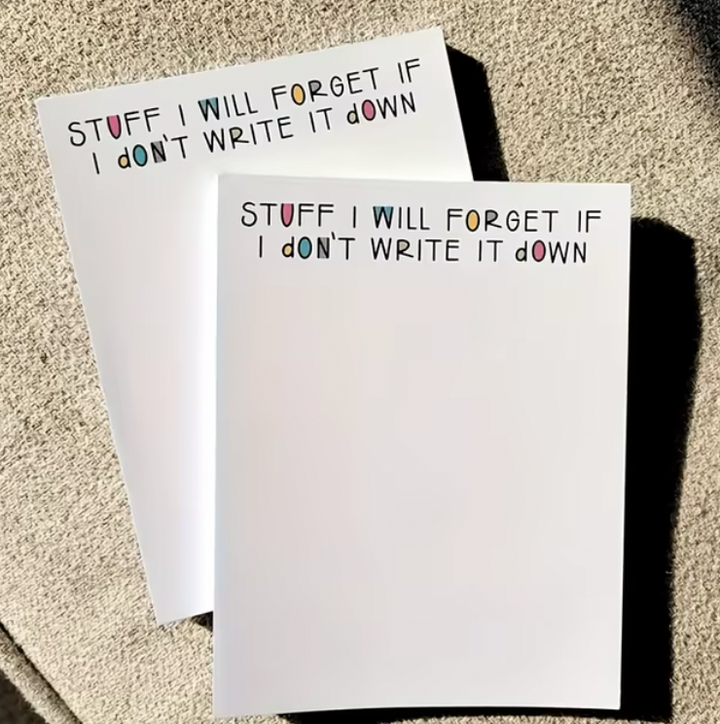 STUFF I WILL FORGET IF
I dON'T WRITE IT dOWN
STUFF I WILL FORGET IF
I dON'T WRITE IT dOWN